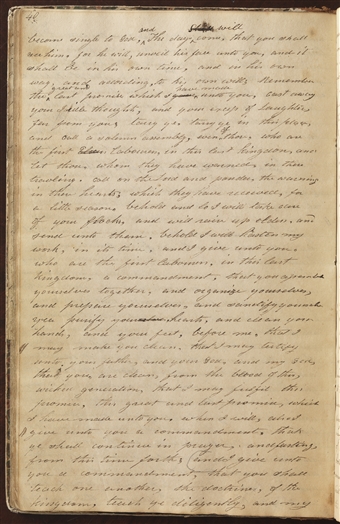 48
and will
become single to God, the days come, that you shall
see him, for he will, unveil his face unto you, and it
shall be in his own time, and in his own
way, and according, to his own will; Remember
great and have made
the, last promise which I unto you, cast away
your idle thought, and your excess of laughter
far from you; tarry ye, tarry ye in this place,
and call a solemn assembly, even of those, who are
the first laborours, in this last kingdom, and
let those, whom they have warned, in their
traveling, call on the Lord and ponder, the warning
in their hearts, which they have received, for
a little season. behold and lo I will take care
of your flocks, and will raise up elders, and
send unto them, behold I will hasten my
work, in its time, and I give unto you,
who are the first laborours, in this last
kingdom, a commandment, that you assemble
yourselves together, and organize yourselves,
and prepare yourselves, and sanctify yourselves
yea purify your hearts, and clean your
hands, and your feet, before me, that I
may make you clean, that I may testify
unto, your father, and your God, and my God,
that you, are clean, from the blood of this,
wicked generation, that I may fulfil this
promise, this great and last promise, which
I have made unto you, when I will, also I
give unto you a commandment, that
ye shall continue in prayer, and fasting
from this time forth; and I give unto
you a commandment that you shall
teach one another, the doctrine, of the
kingdom, teach ye diligently, and my